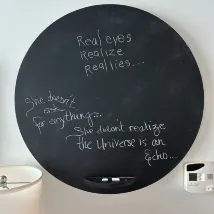 Real eyes
Realize
Real lies...
She doesn't
ask
for anything...
She doesn't realize
the Universe is an
Echo...